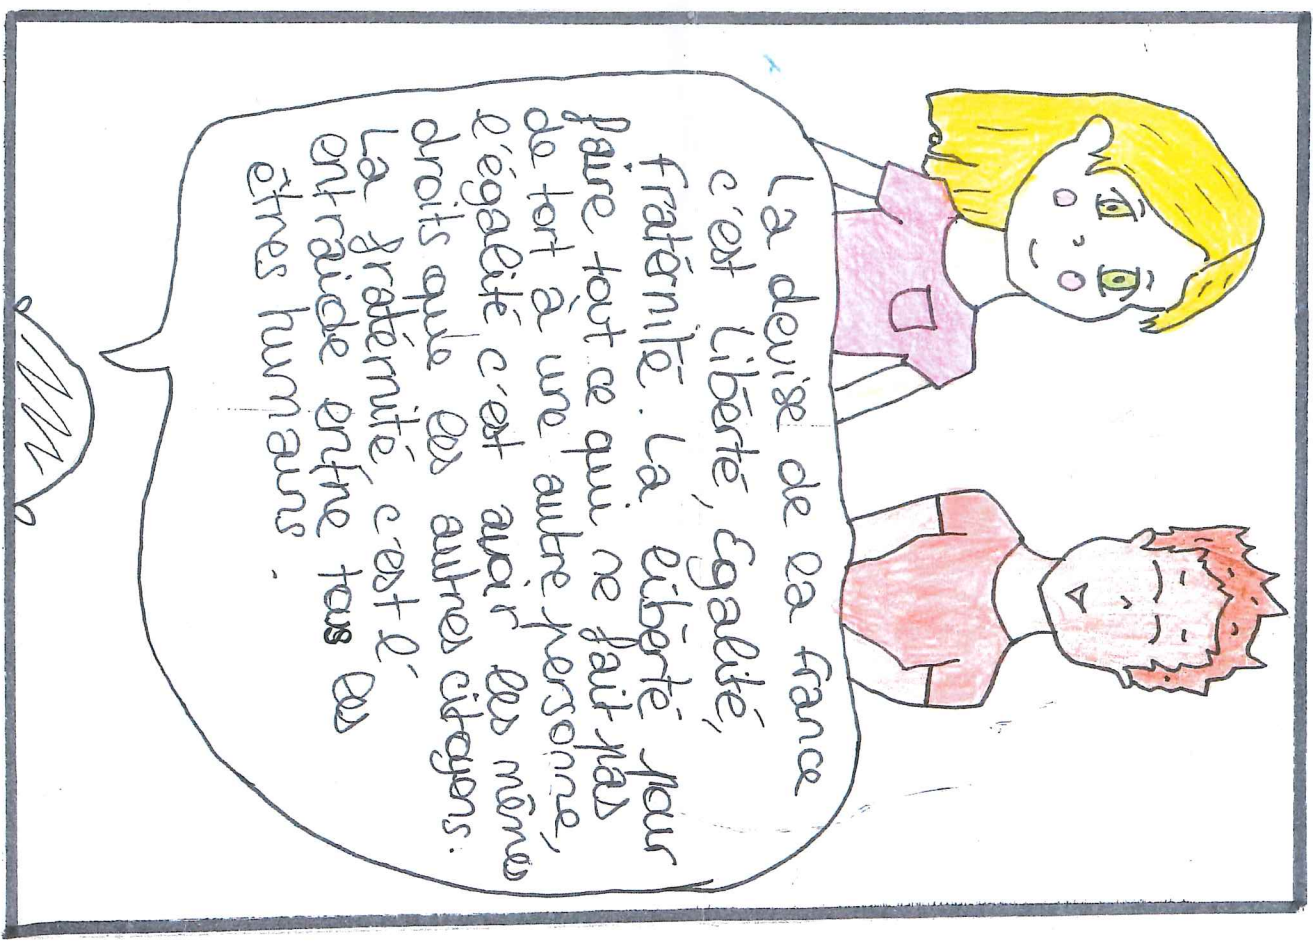 La devise de la france
c'est liberté, Égalité,
fratérnité. La liberté pour
faire tout ce qui ne fait pas
de tort à une autre personne,
l'égalité c'est avoir les mêmes
droits que les autres citoyens.
La fratérnité c'est l'
entraide entre tous les
êtres humains.